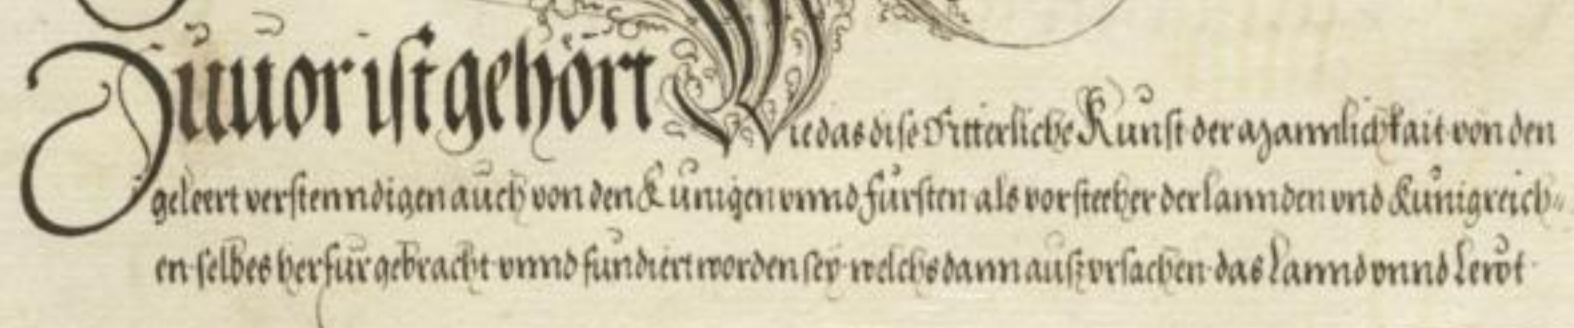 Zuuor ist gehört Wie das dise Ritterliche Kunst der Mannlichkait von den
geleert verstenndigen auch von den Kunigen vnnd fursten als vorsteeher der lannden vnd Kunigreich=
en selbes herfur gebracht vnnd fundiert worden sey welchs dann auß vrsachen das Lannd vnnd Lewt